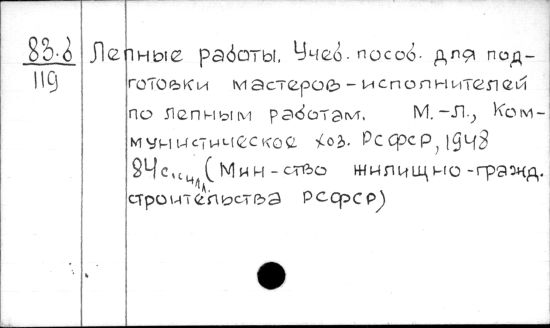 83.6 Лепные работы. Учеб. пособ. для под-
119 готовки мастеров-исполнителей
по лепным работам. М.-Л., Ком-
мунистическое хоз. РСФСР, 1948
84с. с илл. (Мин-ство жилищно-гражд.
строительства РСФСР)